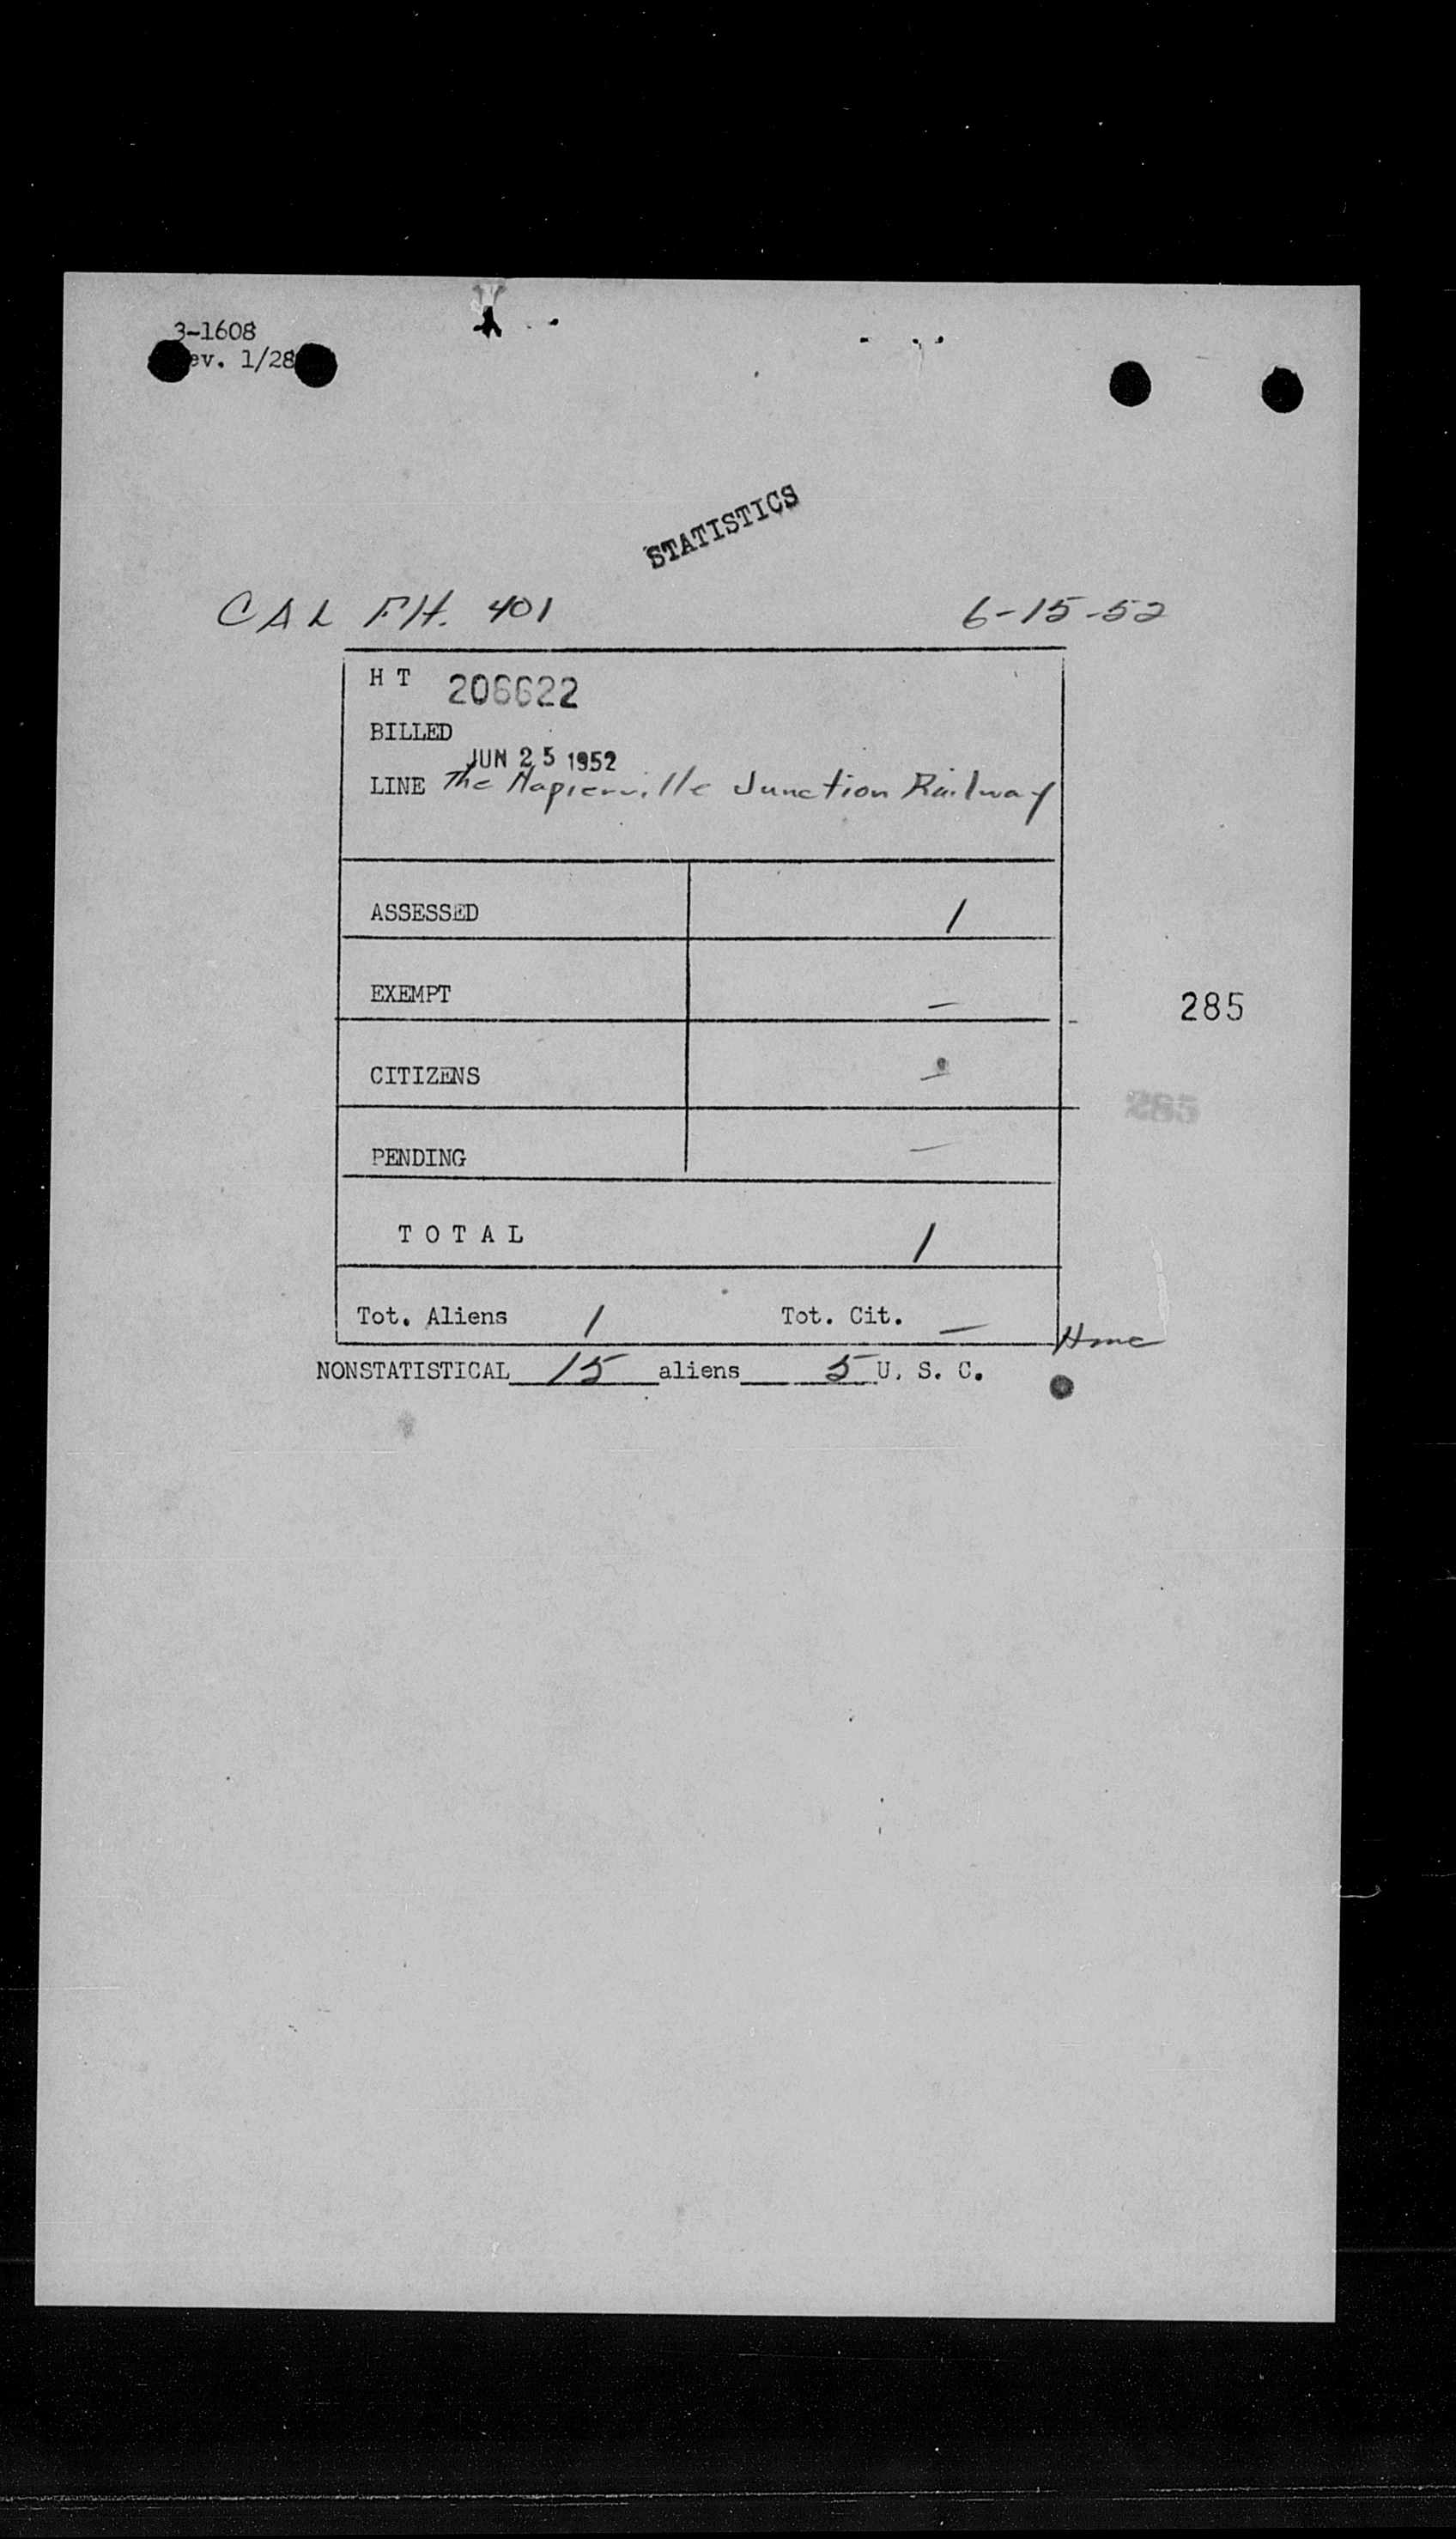 3-1608
ev. 1/28
STATISTICS
CAL FH. 401 6-15-52
H T 206622
BILLED
JUN 25 1952
LINE The Napierville Junction Railway
ASSESSED 1
EXEMPT —
285
CITIZENS —
285
PENDING —
T O T A L 1
Tot. Aliens 1 Tot. Cit. —
NONSTATISTICAL 15 aliens 5 U. S. C.